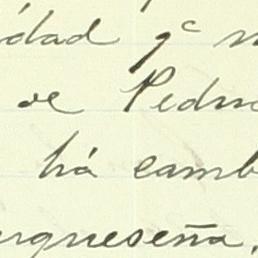 idad qe
de Pedro
há camb
urqueseña,